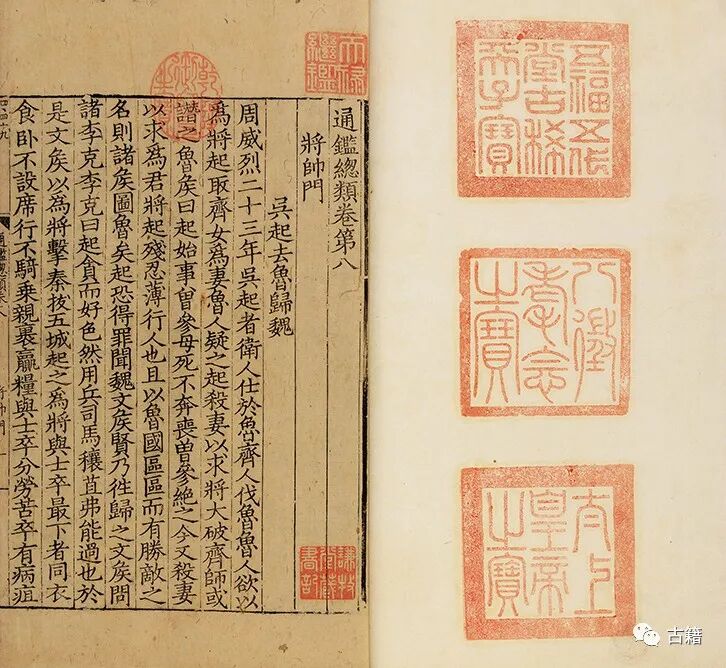 五福五代
堂古稀
天子寶
八徵
耄念
之寶
太上
皇帝
之寶
天祿
繼鑑
乾隆
御覽
之寶
通鑑總類卷第八
將帥門
吳起去魯歸魏
周威烈二十三年吳起者衛人仕於魯齊人伐魯魯人欲以
爲將起取齊女爲妻魯人疑之起殺妻以求將大破齊師或
譖之魯侯曰起始事曾參母死不奔喪曾參絕之今又殺妻
以求爲君將起殘忍薄行人也且以魯國區區而有勝敵之
名則諸侯圖魯矣起恐得罪聞魏文侯賢乃徃歸之文侯問
諸李克李克曰起貪而好色然用兵司馬穰苴弗能過也於
是文侯以爲將擊秦拔五城起之爲將與士卒最下者同衣
食卧不設席行不騎乘親裹贏糧與士卒分勞苦卒有病疽
謙牧
堂藏
書記
古籍